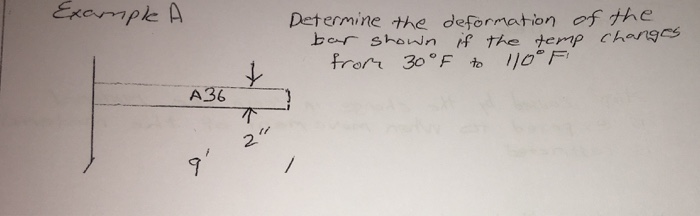 Example A
Determine the deformation of the
bar shown if the temp changes
from 30°F to 110°F
A36
2"
9'